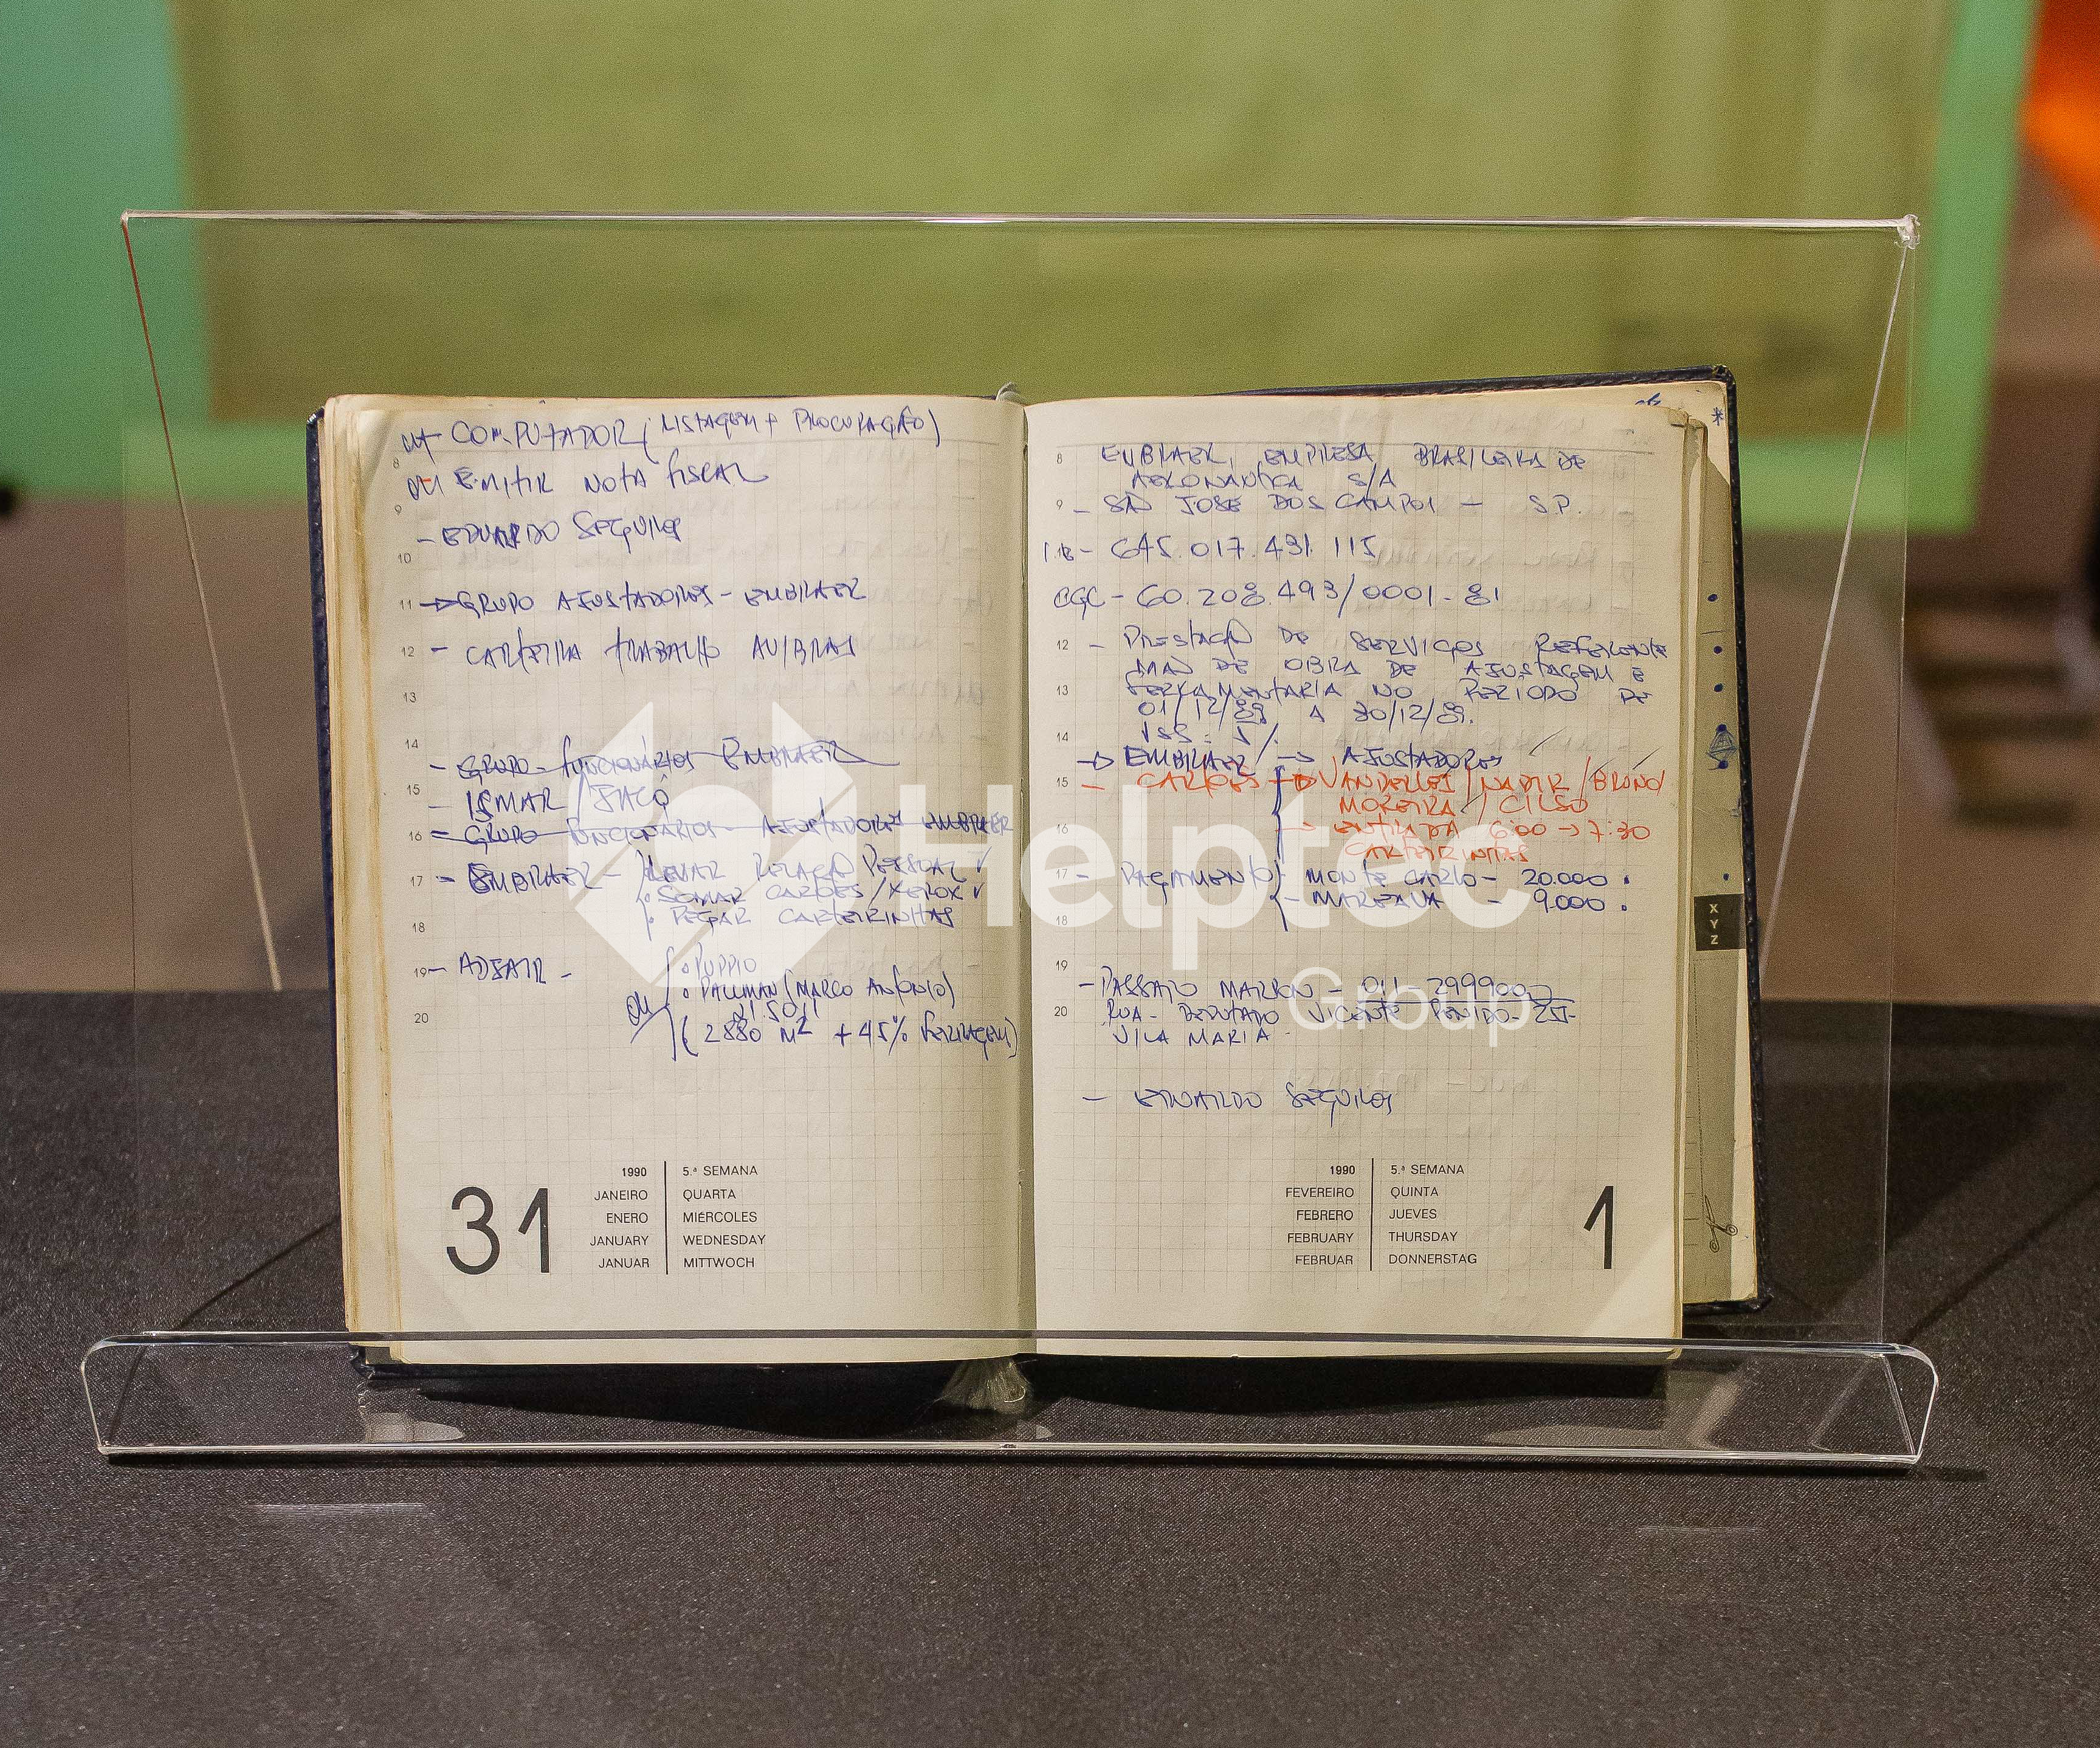 COMPUTADOR (LISTAGEM + PROCURAÇÃO)
8
EMITIR NOTA FISCAL
9
- EDUARDO SEGUROS
10
11 → GRUPO AJUSTADORES - EMBRAER
12 - CARTEIRA TRABALHO AVIBRAS
13
14
- GRUPO FUNCIONÁRIOS EMBRAER
15 - ISMAR / JACÓ
16 = GRUPO FUNCIONÁRIOS AJUSTADORES EMBRAER
17 - EMBRAER - LEVAR RELAÇÃO PESSOAL ✓
• SOMAR CARTÕES / XEROX ✓
• PEGAR CARTEIRINHAS
18
19 - ADJAIR - • PUPPIO
• PALUMAN (MARCO ANTONIO)
215011
20
(2880 M2 + 45% FERRAGEM)
31
1990 5.ª SEMANA
JANEIRO QUARTA
ENERO MIÉRCOLES
JANUARY WEDNESDAY
JANUAR MITTWOCH
8 EMBRAER, EMPRESA BRASILEIRA DE
AERONAUTICA S/A
9 - SÃO JOSE DOS CAMPOS - S.P.
- 645.017.431.115
CGC - 60.208.493/0001-81
12 - PRESTAÇÃO DE SERVIÇOS REFERENTE
MÃO DE OBRA DE AJUSTAGEM E
13 FERRAMENTARIA NO PERIODO DE
01/12/89 A 30/12/89.
14 ISS: 5%
→ EMBRAER → AJUSTADORES
15 - CARTÕES → VANDERLEI / NADIR / BRUNO
MOREIRA / CILSO
16 → ENTRADA 6:00 → 7:30
CARTEIRINHAS
17 - PAGAMENTO - MONTE CARLO - 20.000 •
- - 9.000 •
18
19
- PASSARO MARRON - 011 2999000
20 RUA - DEPUTADO VICENTE PENIDO - 255 -
VILA MARIA
- EDUARDO SEGUROS
1990 5.ª SEMANA
FEVEREIRO QUINTA
FEBRERO JUEVES
FEBRUARY THURSDAY
FEBRUAR DONNERSTAG
1
X
Y
Z
Helptec
Group